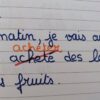 matin, je vais a
acheter
achete des le
s fruits.